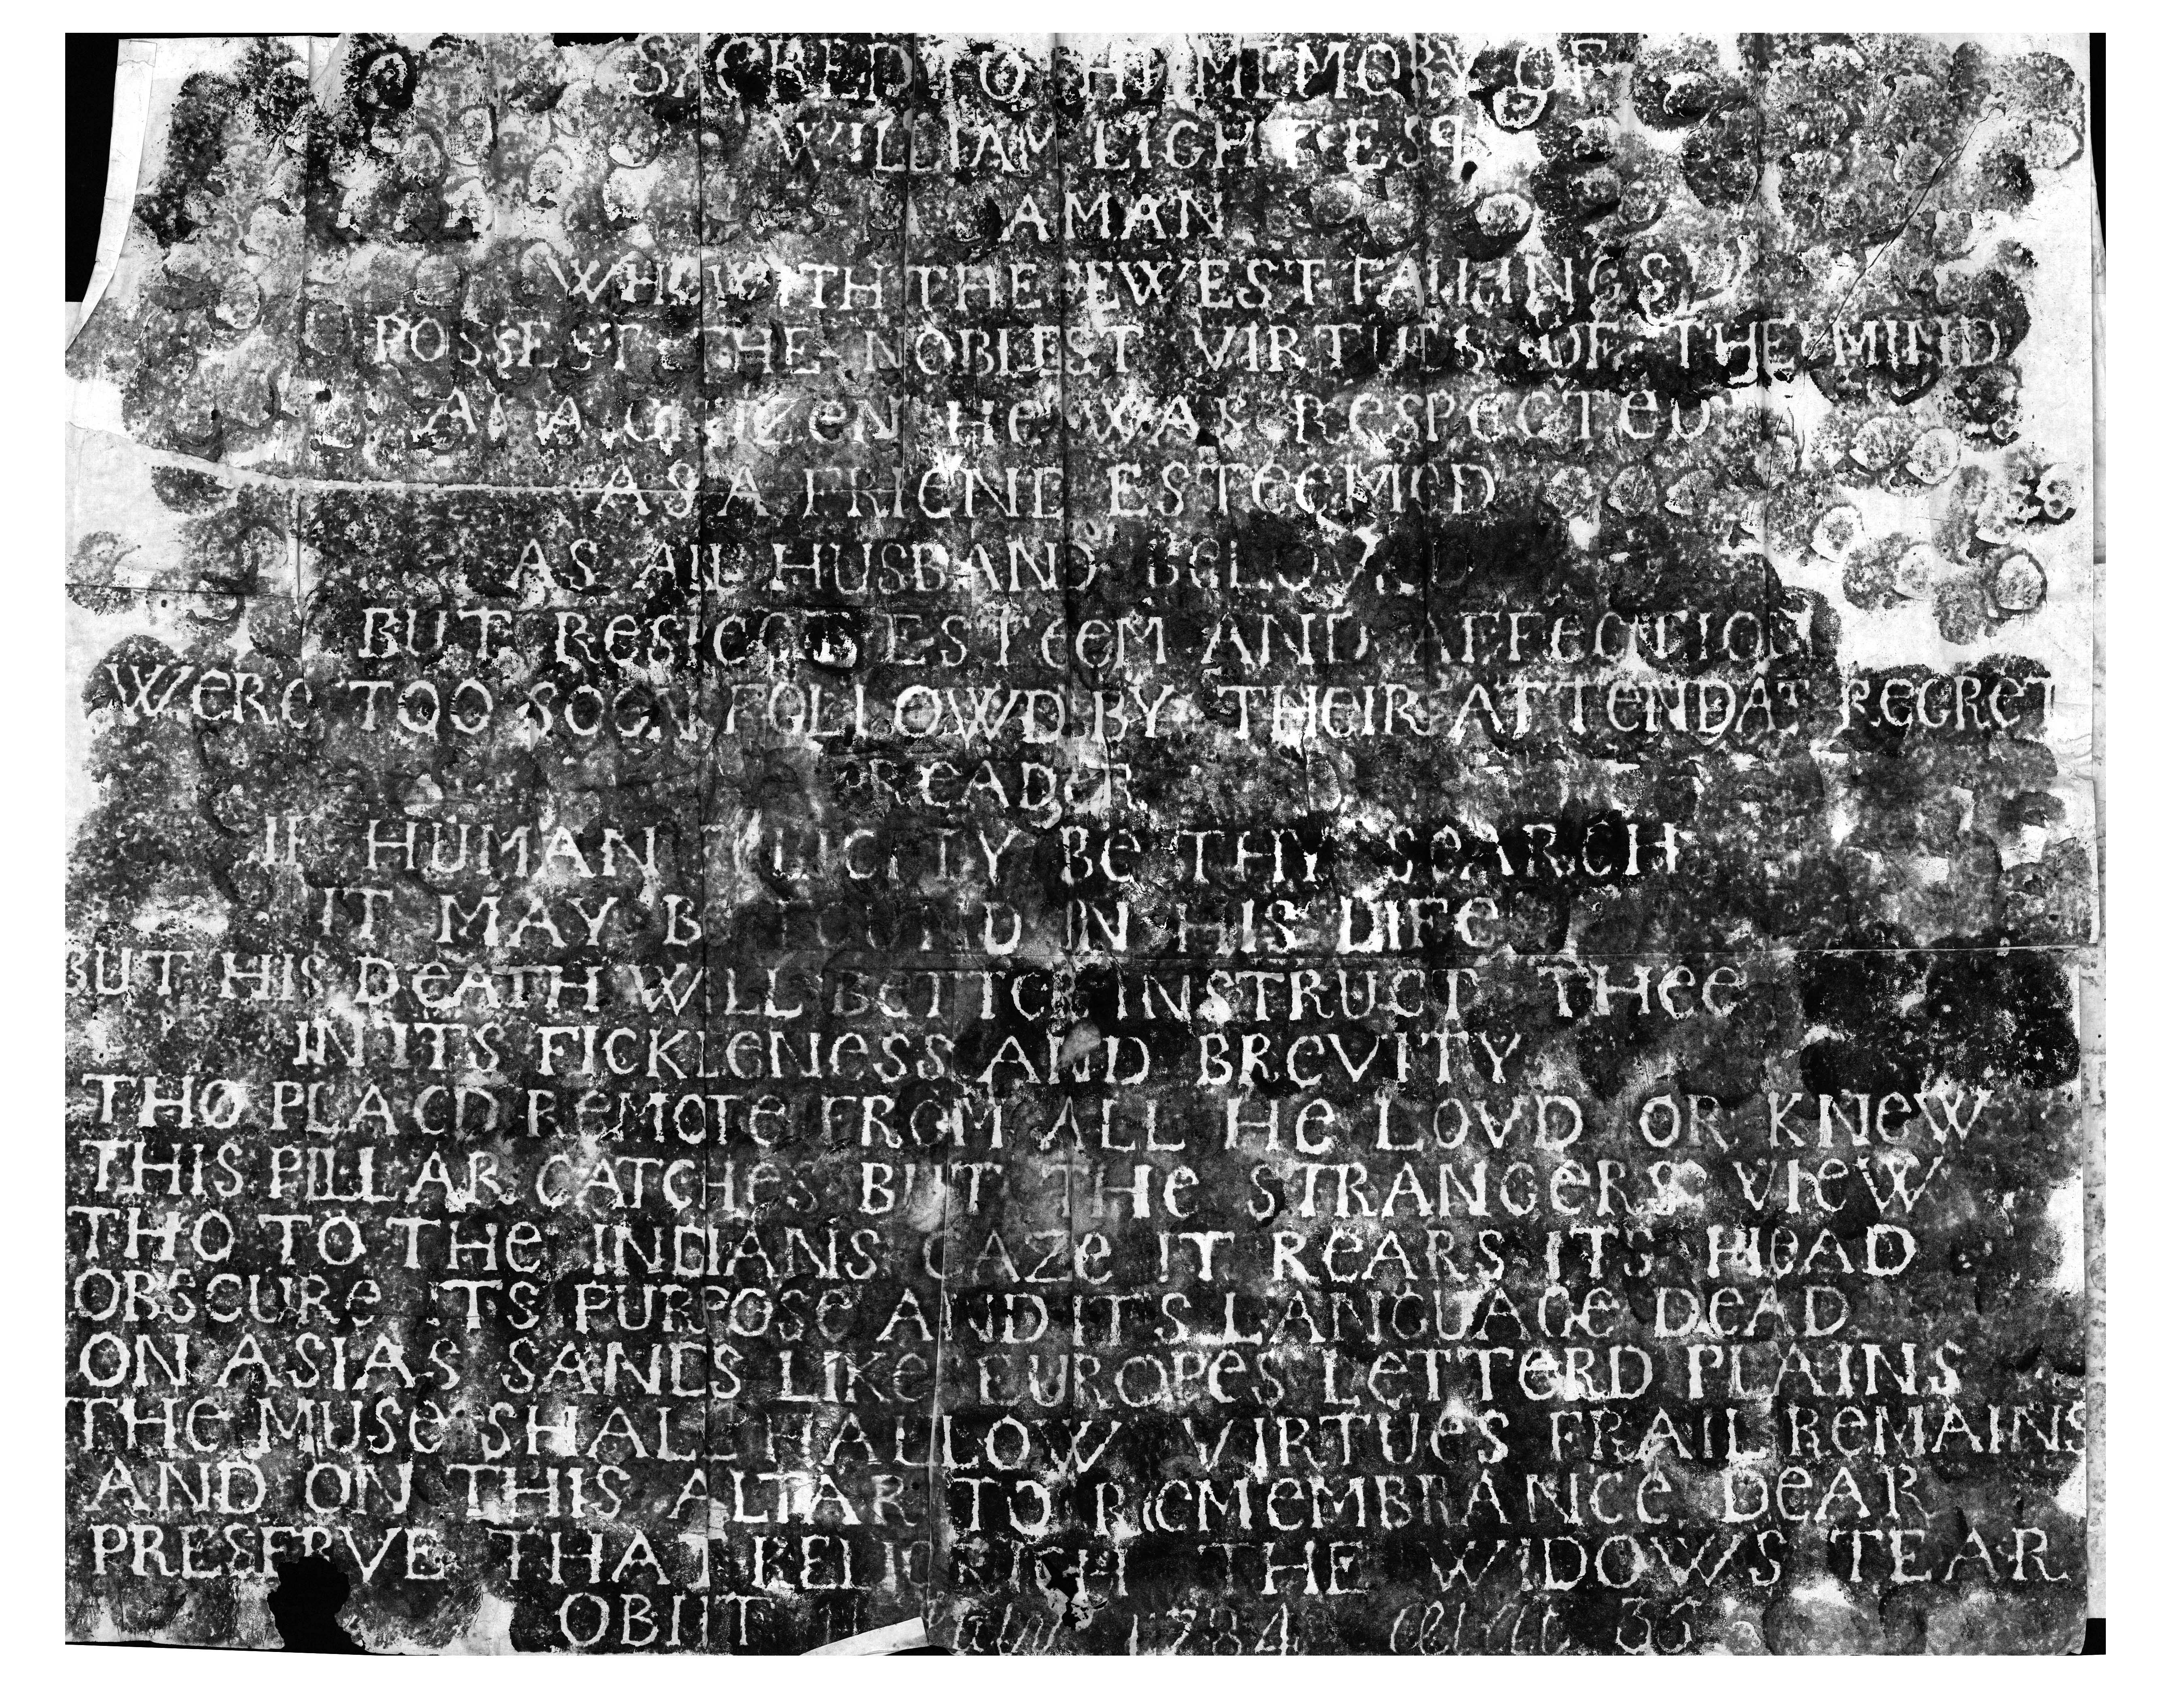 SACRED TO THE MEMORY OF
WILLIAM ESQ
A MAN
WHO WITH THE FEWEST FAILINGS
POSSEST THE NOBLEST VIRTUES OF THE MIND
AS A CITIZEN HE WAS RESPECTED
AS A FRIEND ESTEEMED
AS AN HUSBAND BELOVED
BUT RESPECT ESTEEM AND AFFECTION
WERE TOO SOON FOLLOWD BY THEIR ATTENDAT REGRET
READER
IF HUMAN FELICITY BE THY SEARCH
IT MAY BE FOUND IN HIS LIFE
BUT HIS DEATH WILL BETTER INSTRUCT THEE
IN ITS FICKLENESS AND BREVITY
THO PLACD REMOTE FROM ALL HE LOVD OR KNEW
THIS PILLAR CATCHES BUT THE STRANGERS VIEW
THO TO THE INDIANS GAZE IT REARS ITS HEAD
OBSCURE ITS PURPOSE AND ITS LANGUAGE DEAD
ON ASIAS SANDS LIKE EUROPES LETTERD PLAINS
THE MUSE SHALL HALLOW VIRTUES FRAIL REMAINS
AND ON THIS ALTAR TO REMEMBRANCE DEAR
PRESERVE THAT RELIC RICH THE WIDOWS TEAR
OBIIT 1784